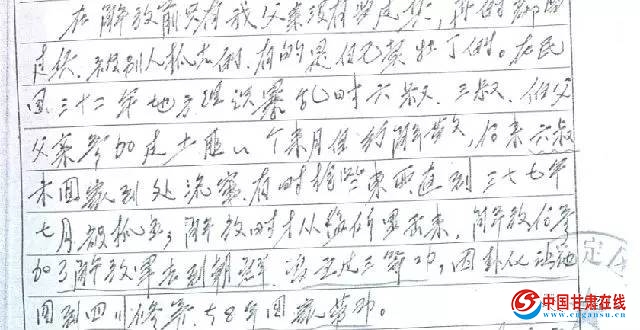 在解放前只有我父亲没有当过兵，都当
过兵，被别人抓去的，有的是自己卖壮丁的。在民
国三十二年地方暴乱时六叔、三叔、伯父
父亲参加过土匪八个来月便解散，后来六叔
未回家到处流窜，有时抢些东西直到三十七年
七月被抓去，解放时才从监所里出来，解放后参
加了解放军去到朝鲜，三等功，因部队
回到四川修，58年回家劳动。
定
中国甘肃在线
www.cngansu.cn